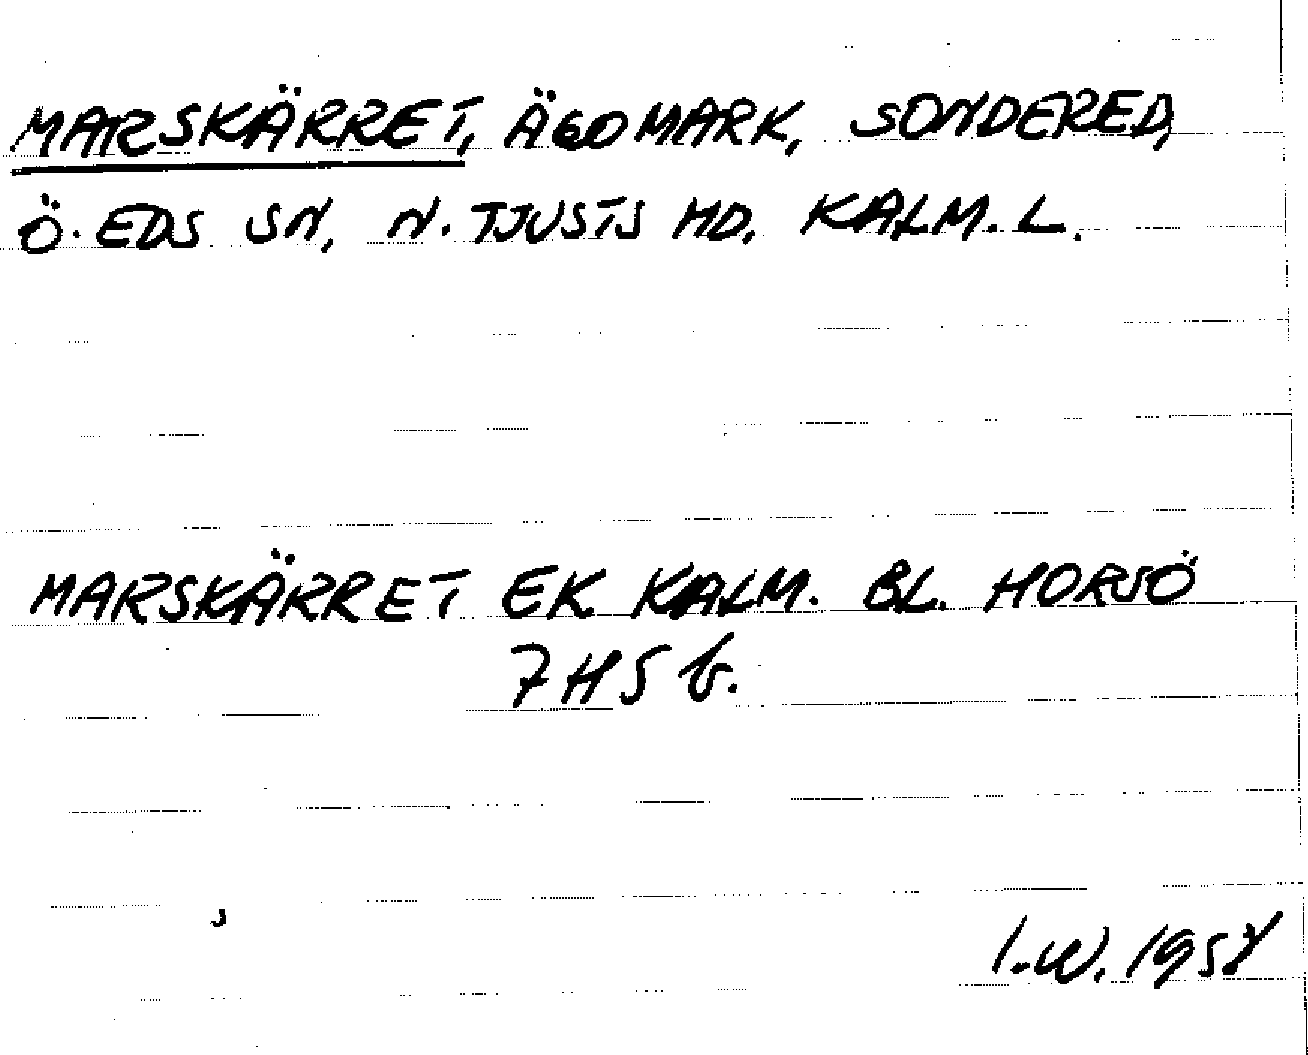 MARSKÄRRET, ÄGOMARK, SONDERED,
Ö. EDS SN, N. TJUSTS HD, KALM. L.
MARSKÄRRET EK KALM. BL. HORSÖ
7H5 b.
I.W. 1958